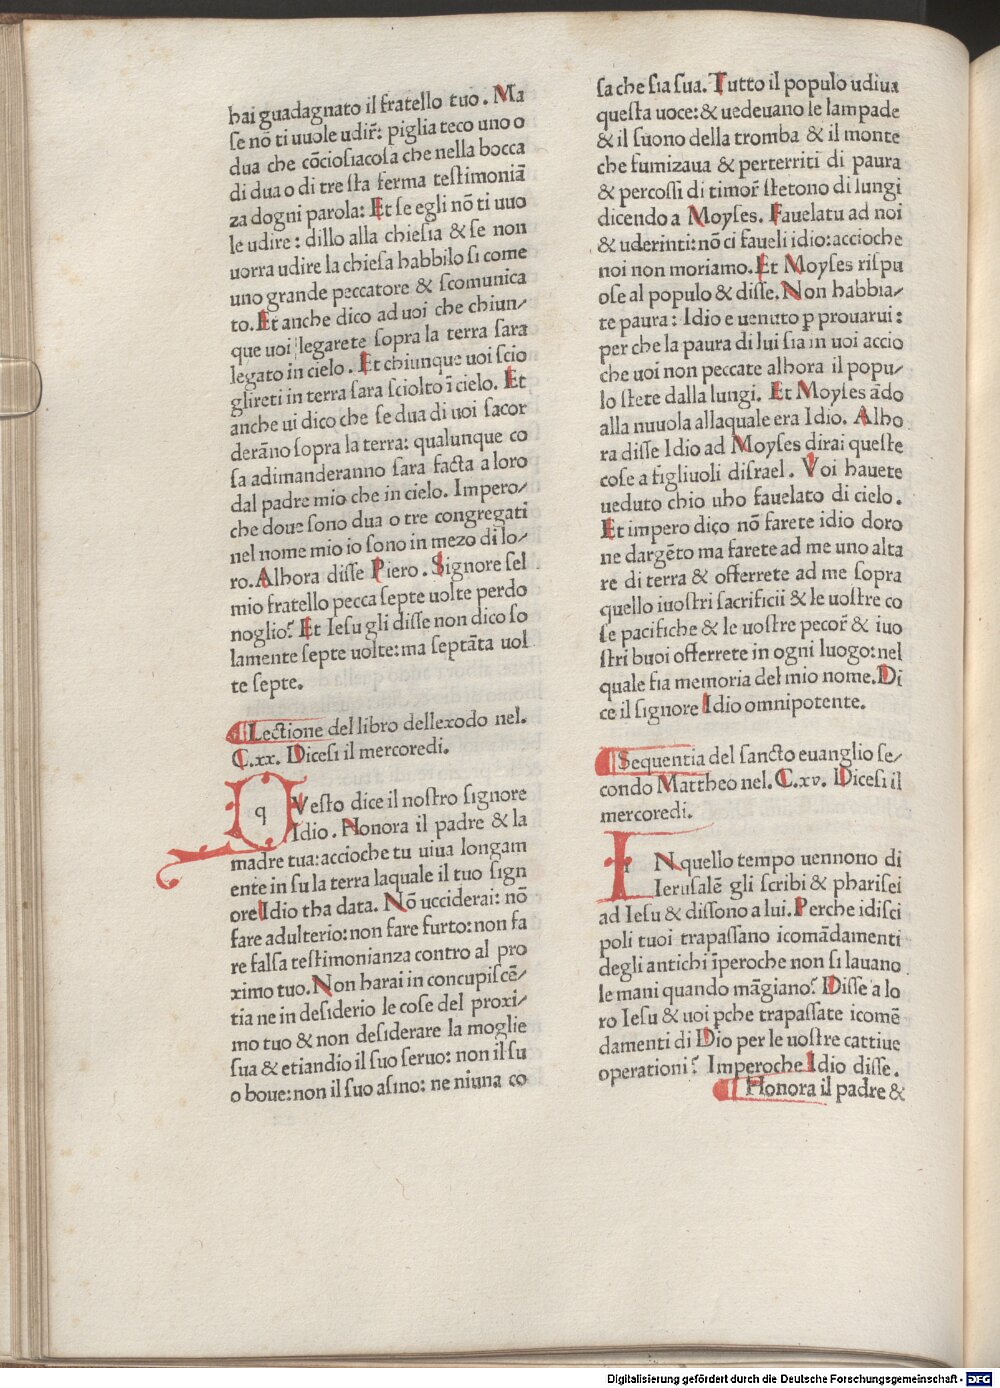 hai guadagnato il fratello tuo. Ma
ſe nō ti uuole udir̄: piglia teco uno o
dua che cōcioſiacoſa che nella bocca
di dua o di tre ſta ferma teſtimoniā
za dogni parola: Et ſe egli nō ti uuo
le udire: dillo alla chieſia & ſe non
uorra udire la chieſa habbilo ſi come
uno grande peccatore & ſcomunica
to. Et anche dico ad uoi che chiun⸗
que uoi legarete ſopra la terra ſara
legato in cielo. Et chiunque uoi ſcio
glireti in terra ſara ſciolto ī cielo. Et
anche ui dico che ſe dua di uoi ſacor
derāno ſopra la terra: qualunque co
ſa adimanderanno ſara facta a loro
dal padre mio che in cielo. Impero⸗
che doue ſono dua o tre congregati
nel nome mio io ſono in mezo di lo⸗
ro. Alhora diſſe Piero. Signore ſel
mio fratello pecca ſepte uolte perdo
noglio? Et Ieſu gli diſſe non dico ſo
lamente ſepte uolte: ma ſeptāta uol
te ſepte.
Lectione del libro dellexodo nel.
C.xx. Diceſi il mercoredi.
q Veſto dice il noſtro ſignore
Idio. Honora il padre & la
madre tua: accioche tu uiua longam
ente in ſu la terra laquale il tuo ſign
ore Idio tha data. Nō ucciderai: nō
fare adulterio: non fare furto: non fa
re falſa teſtimonianza contro al pro
ximo tuo. Non harai in concupiſcē⸗
tia ne in deſiderio le coſe del proxi⸗
mo tuo & non deſiderare la moglie
ſua & etiandio il ſuo ſeruo: non il ſu
o boue: non il ſuo aſino: ne niuna co
ſa che ſia ſua. Tutto il populo udiua
queſta uoce: & uedeuano le lampade
& il ſuono della tromba & il monte
che fumizaua & perterriti di paura
& percoſſi di timor̄ ſtetono di lungi
dicendo a Moyſes. Fauelatu ad noi
& uderinti: nō ci faueli idio: accioche
noi non moriamo. Et Moyſes riſpu
oſe al populo & diſſe. Non habbia⸗
te paura: Idio e uenuto ꝑ prouarui:
per che la paura di lui ſia in uoi accio
che uoi non peccate alhora il popu⸗
lo ſtete dalla lungi. Et Moyſes ādo
alla nuuola allaquale era Idio. Alho
ra diſſe Idio ad Moyſes dirai queſte
coſe a figliuoli diſrael. Voi hauete
ueduto chio uho fauelato di cielo.
Et impero dico nō farete idio doro
ne dargēto ma farete ad me uno alta
re di terra & offerrete ad me ſopra
quello iuoſtri ſacrificii & le uoſtre co
ſe pacifiche & le uoſtre pecor̄ & iuo
ſtri buoi offerrete in ogni luogo: nel
quale fia memoria del mio nome. Di
ce il ſignore Idio omnipotente.
Sequentia del ſancto euanglio ſe⸗
condo Mattheo nel. C.xv. Diceſi il
mercoredi.
i N quello tempo uennono di
Ieruſalē gli ſcribi & phariſei
ad Ieſu & diſſono a lui. Perche idiſci
poli tuoi trapaſſano icomādamenti
degli antichi īperoche non ſi lauano
le mani quando māgiano? Diſſe a lo
ro Ieſu & uoi ꝑche trapaſſate icomē
damenti di Dio per le uoſtre cattiue
operationi? Imperoche Idio diſſe.
Honora il padre &
Digitalisierung gefördert durch die Deutsche Forschungsgemeinschaft - DFG